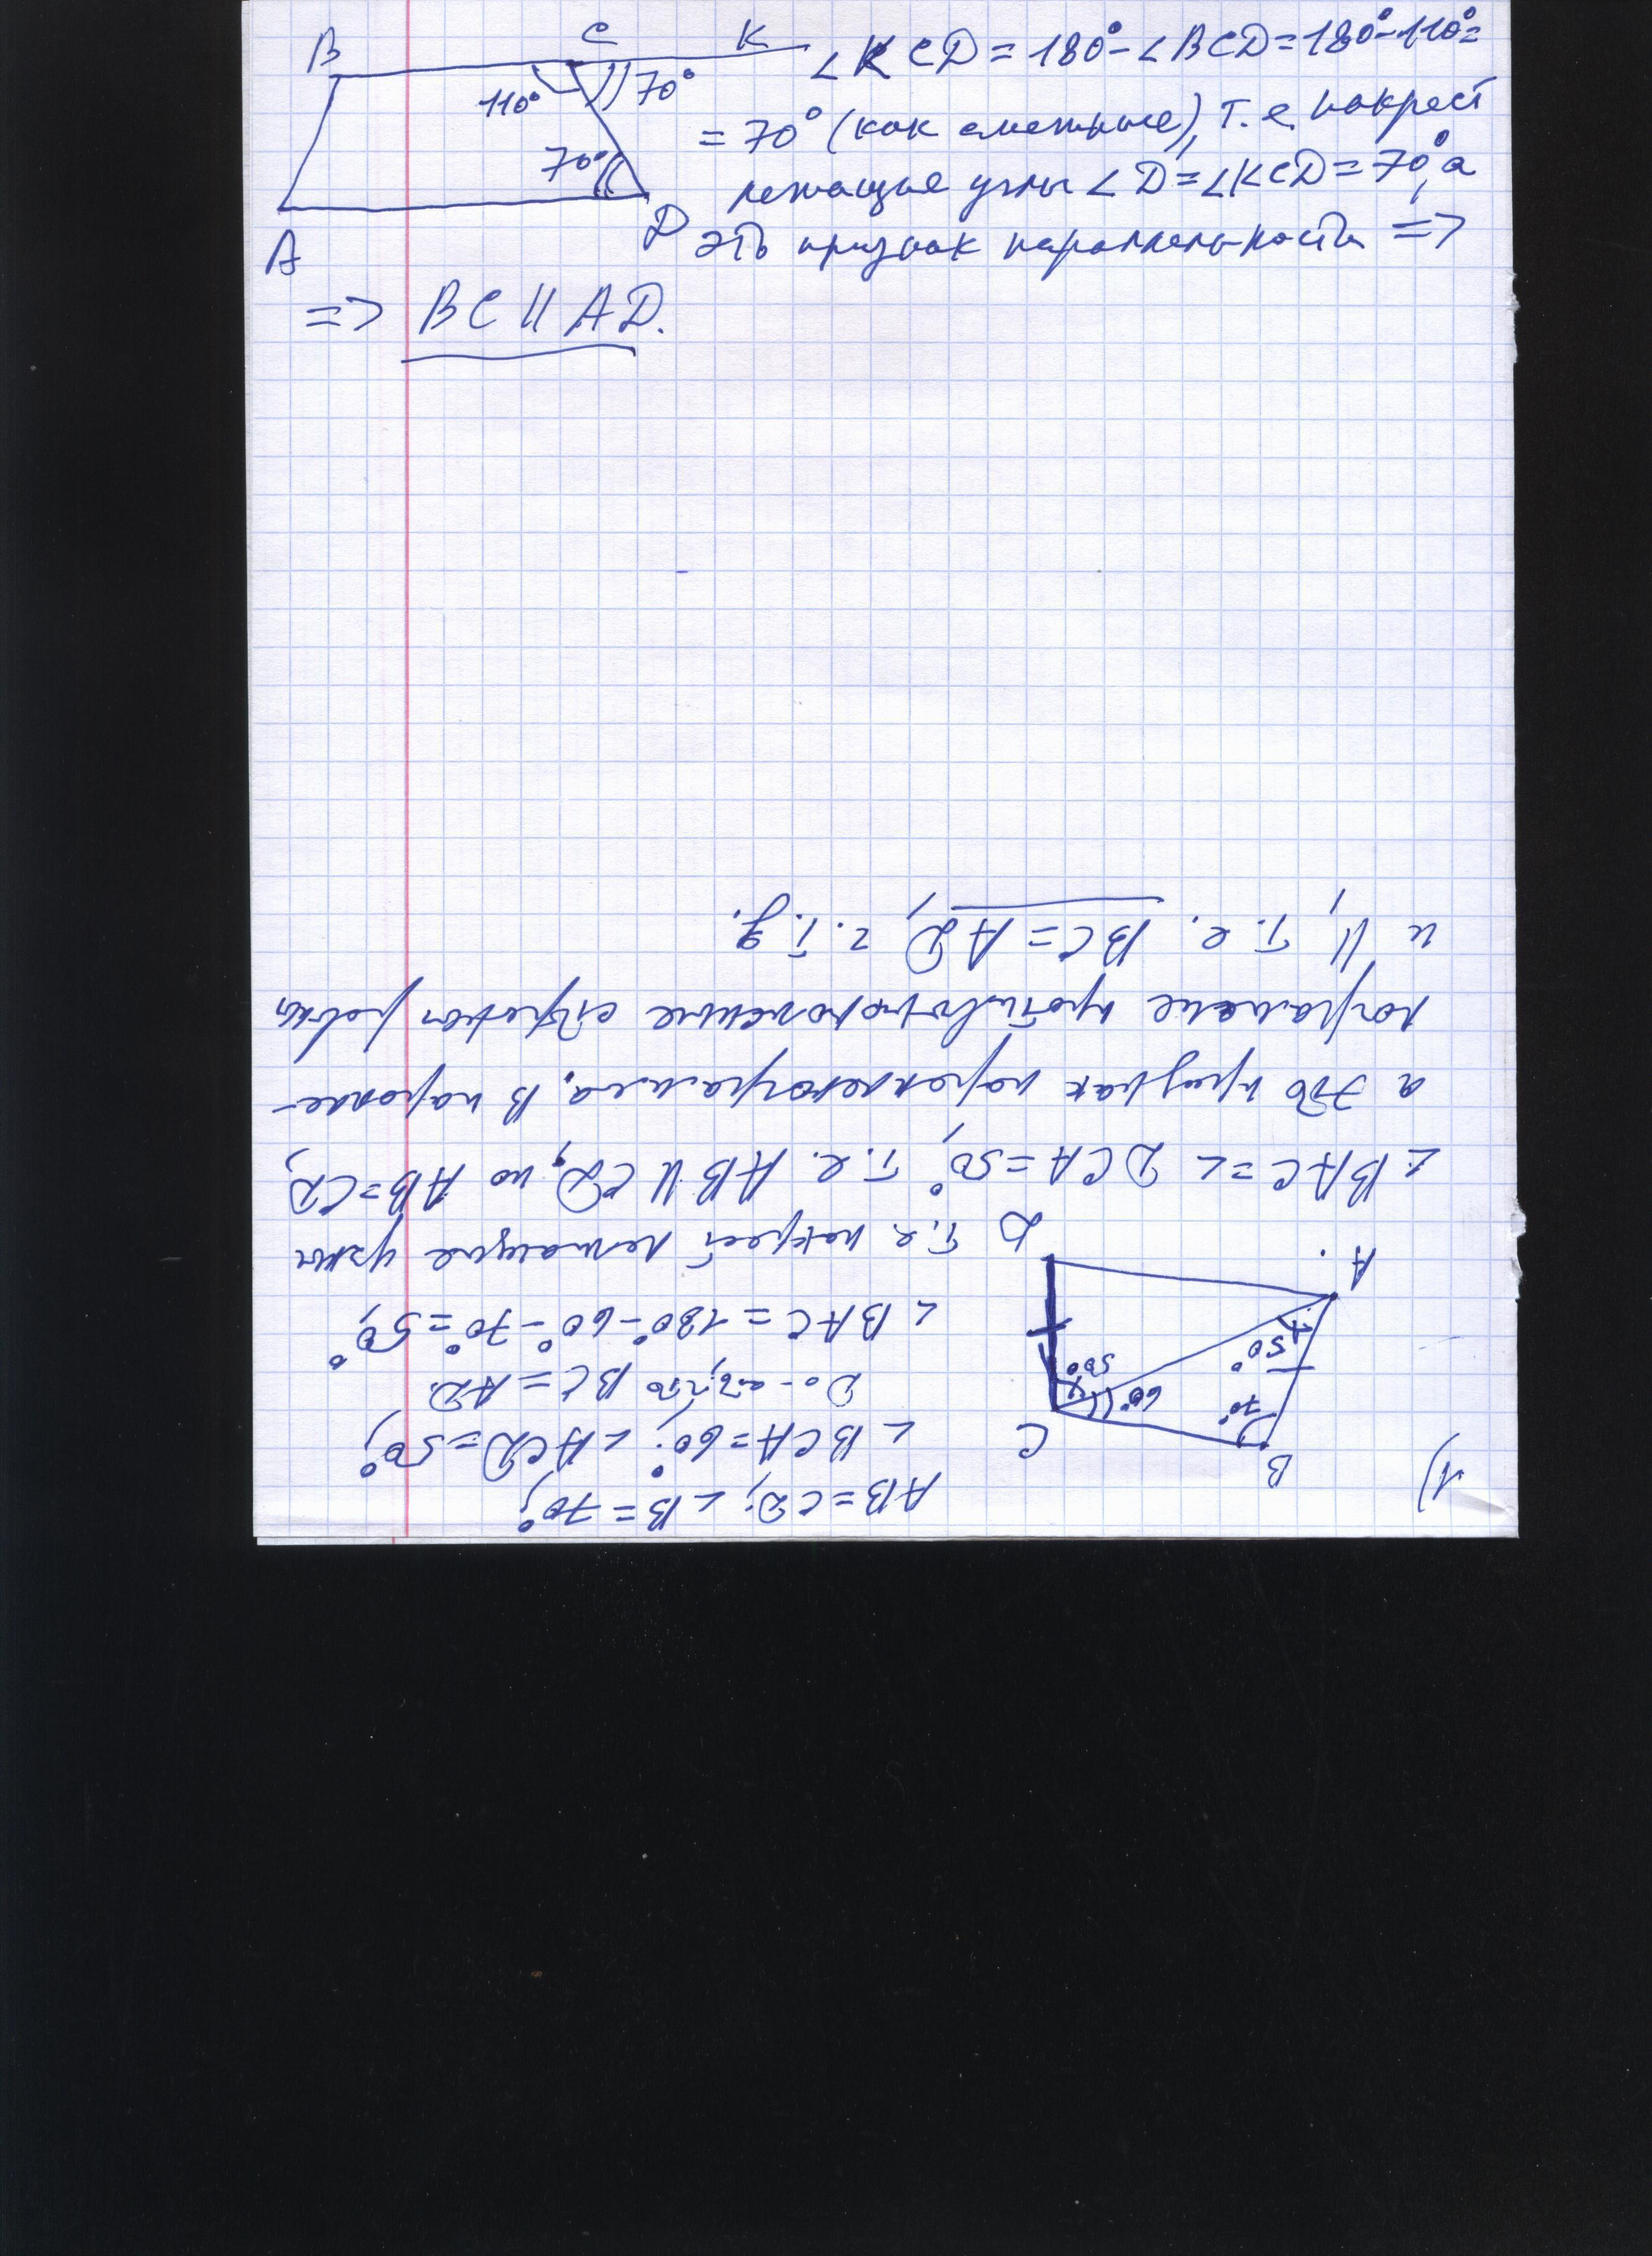 B C K
110° 70°
70°
A D
∠KCD=180°-∠BCD=180°-110°=
=70° (как смежные), т.е. накрест
лежащие углы ∠D=∠KCD=70°, а
это признак параллельности =>
=> BC || AD.
1)
B C
70° 60° 50°
50°
A D
AB=CD; ∠B=70°;
∠BCA=60°; ∠ACD=50°;
Д-ать, что BC=AD.
∠BAC=180°-60°-70°=50°,
т.е. накрест лежащие углы
∠BAC=∠DCA=50°, т.е. AB || CD, но AB=CD,
а это признак параллелограмма. В паралле-
лограмме противоположные стороны равны
и ||, т.е. BC=AD, ч.т.д.